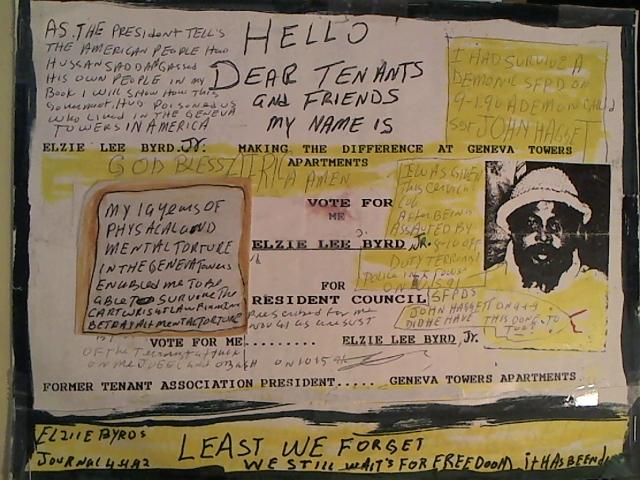 AS THE PRESIDENT TELL'S
THE AMERICAN PEOPLE How
HUSSAN SADDAM GASSED
HIS OWN PEOPLE IN my
Book I will SHow How THis
Government HUD POISONED US
WHO LIVED IN THE GENEVA
TOWERS IN AMERICA
HELLO
DEAR TENANTS
AND FRIENDS
MY NAME IS
I HAD SURVIVE A
DEMONIC SFPD ON
9-1-90 A DEMON CALLED
SGT JOHN HAGGET
ELZIE LEE BYRD.Jr. MAKING THE DIFFERENCE AT GENEVA TOWERS
APARTMENTS
GOD BLESS AFRICA AMEN
MY 19 years OF
PHYSACAL AND
MENTAL TORTURE
IN THE GENEVA Towers
ENabLED me TO BE
ABLE TO SURVIVE THE
CARTWRIGHT LAW FIRM
BETRAYAL MENTAL TORTURE
VOTE FOR
ME
ELZIE LEE BYRD Jr.
FOR
RESIDENT COUNCIL
I WAS GIVEN
THIS
AFTER BEING
ASSAUTED BY
9-10 OFF
DUTY
Police IN TOWER
ON
SFPDS
JOHN HAGGETT ON 9-1-9
DID HE HAVE THIS DONE TO
VOTE FOR ME......... ELZIE LEE BYRD, Jr.
ON 10 15
FORMER TENANT ASSOCIATION PRESIDENT..... GENEVA TOWERS APARTMENTS
ELZIIE BYRDS
JOURNAL
LEAST WE FORGET
WE STILL WAIT'S FOR FREEDOOM iT HAS BEEN